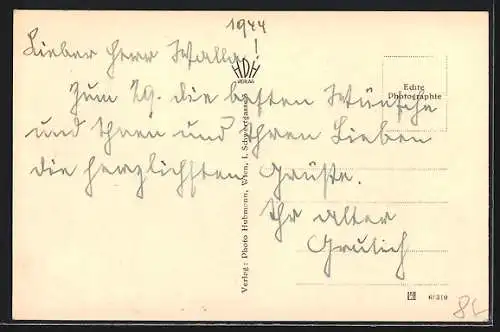 1944
Lieber Herr Walla!
HDH
VERLAG
Echte
Photographie
Zum 29. die besten Wünsche
und Ihnen und Ihren Lieben
die herzlichsten Grüße.
Ihr alter
Grulich
Verlag: Photo Hubmann, Wien, I, Schwertgasse
6/319